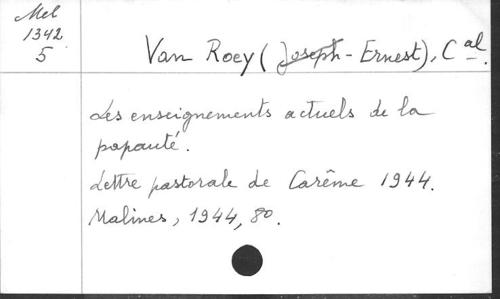 Mel
1342
5
Van Roey (Joseph - Ernest), Cal.
Les enseignements actuels de la
papauté.
Lettre pastorale de Carême 1944.
Malines, 1944, 8o.